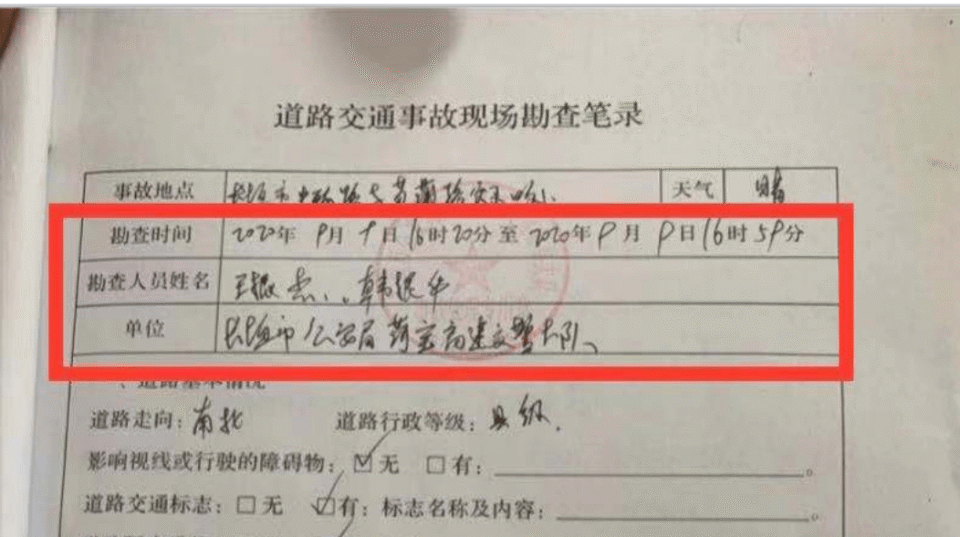 道路交通事故现场勘查笔录
事故地点 长垣市 天气 晴
勘查时间 2020年9月9日16时20分至2020年9月9日16时59分
勘查人员姓名 王银杰、韩银华
单位 长垣市公安局菏宝高速交警大队、
一、道路基本情况
道路走向:南北 道路行政等级:县级.
影响视线或行驶的障碍物:☑无 □有: 。
道路交通标志:□无 ☑有:标志名称及内容: 。